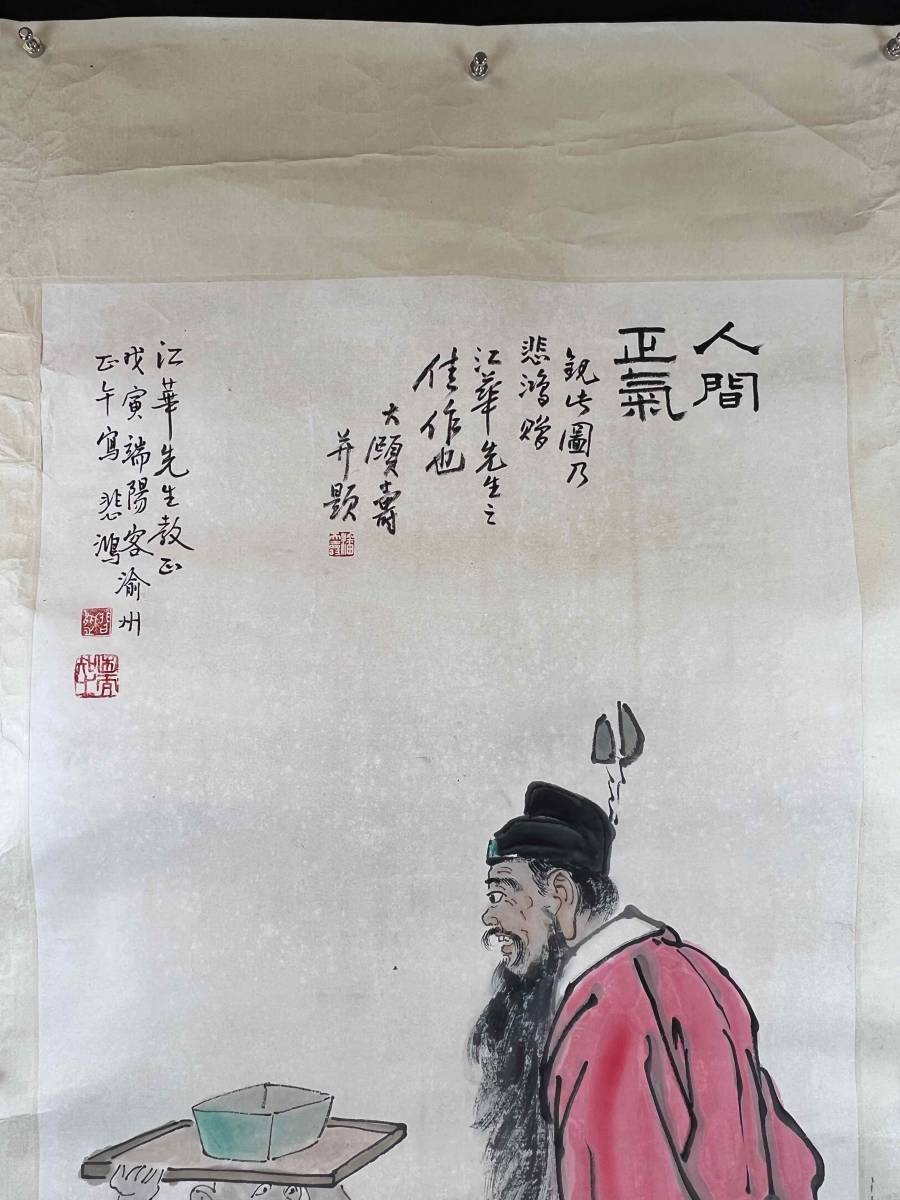 人間
正氣
観此圖乃
悲鴻贈
江華先生之
佳作也
大頤壽
并題
江華先生教正
戊寅端陽客渝州
正午寫 悲鴻